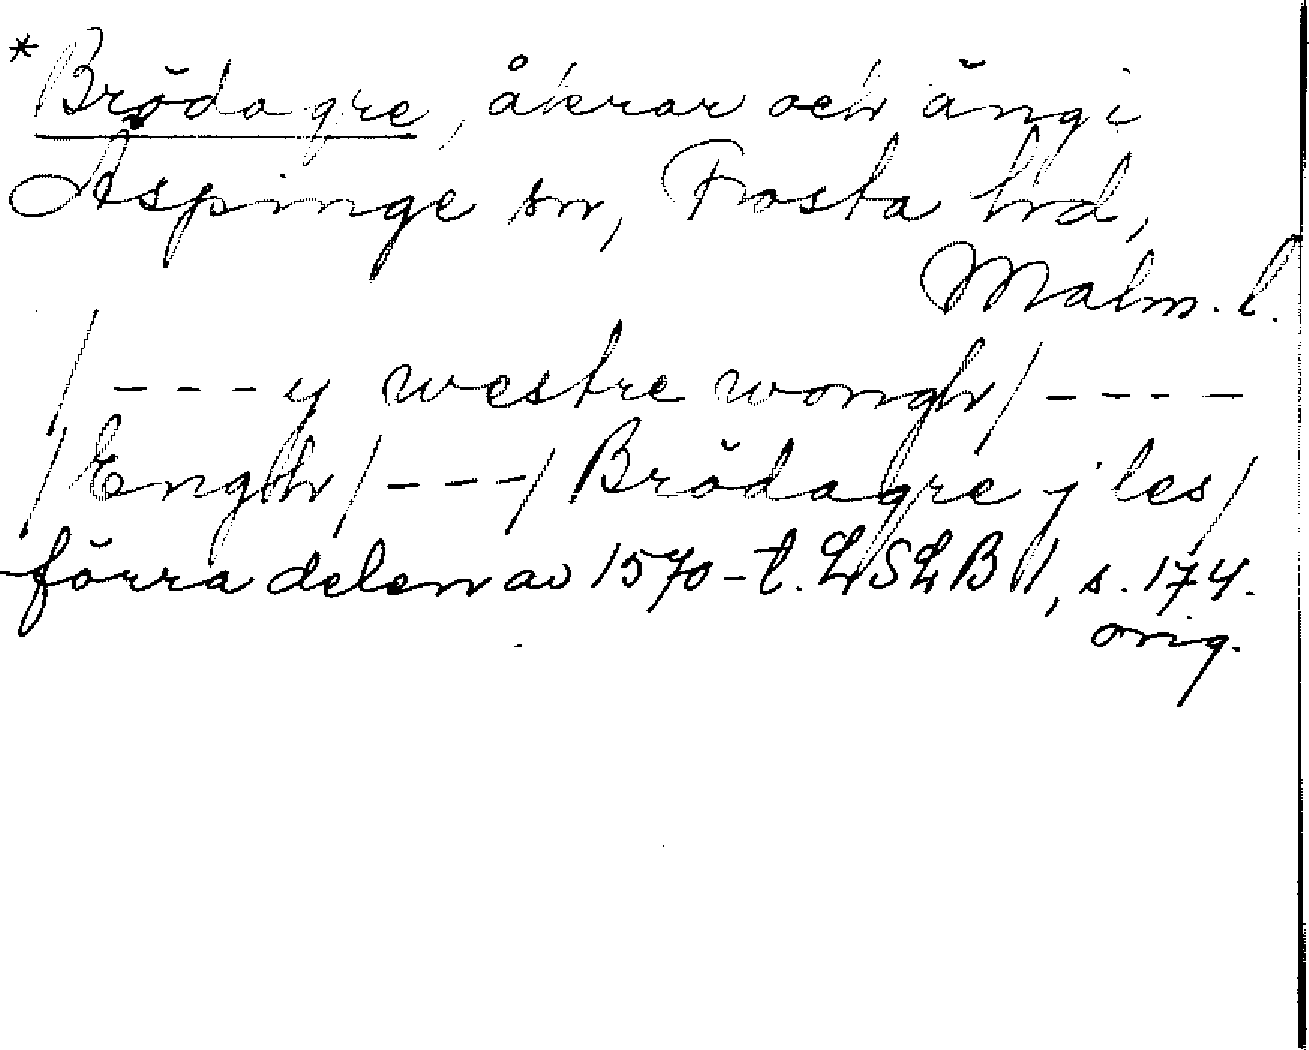 *Brödagre, åkrar och äng i
Aspinge sn, Frosta hd,
Malm. l.
/ - - - y westre wongh / - - - -
/ Engh / - - - / Brödagre j les /
förra delen av 1570-t. LSLB 1, s. 174.
orig.